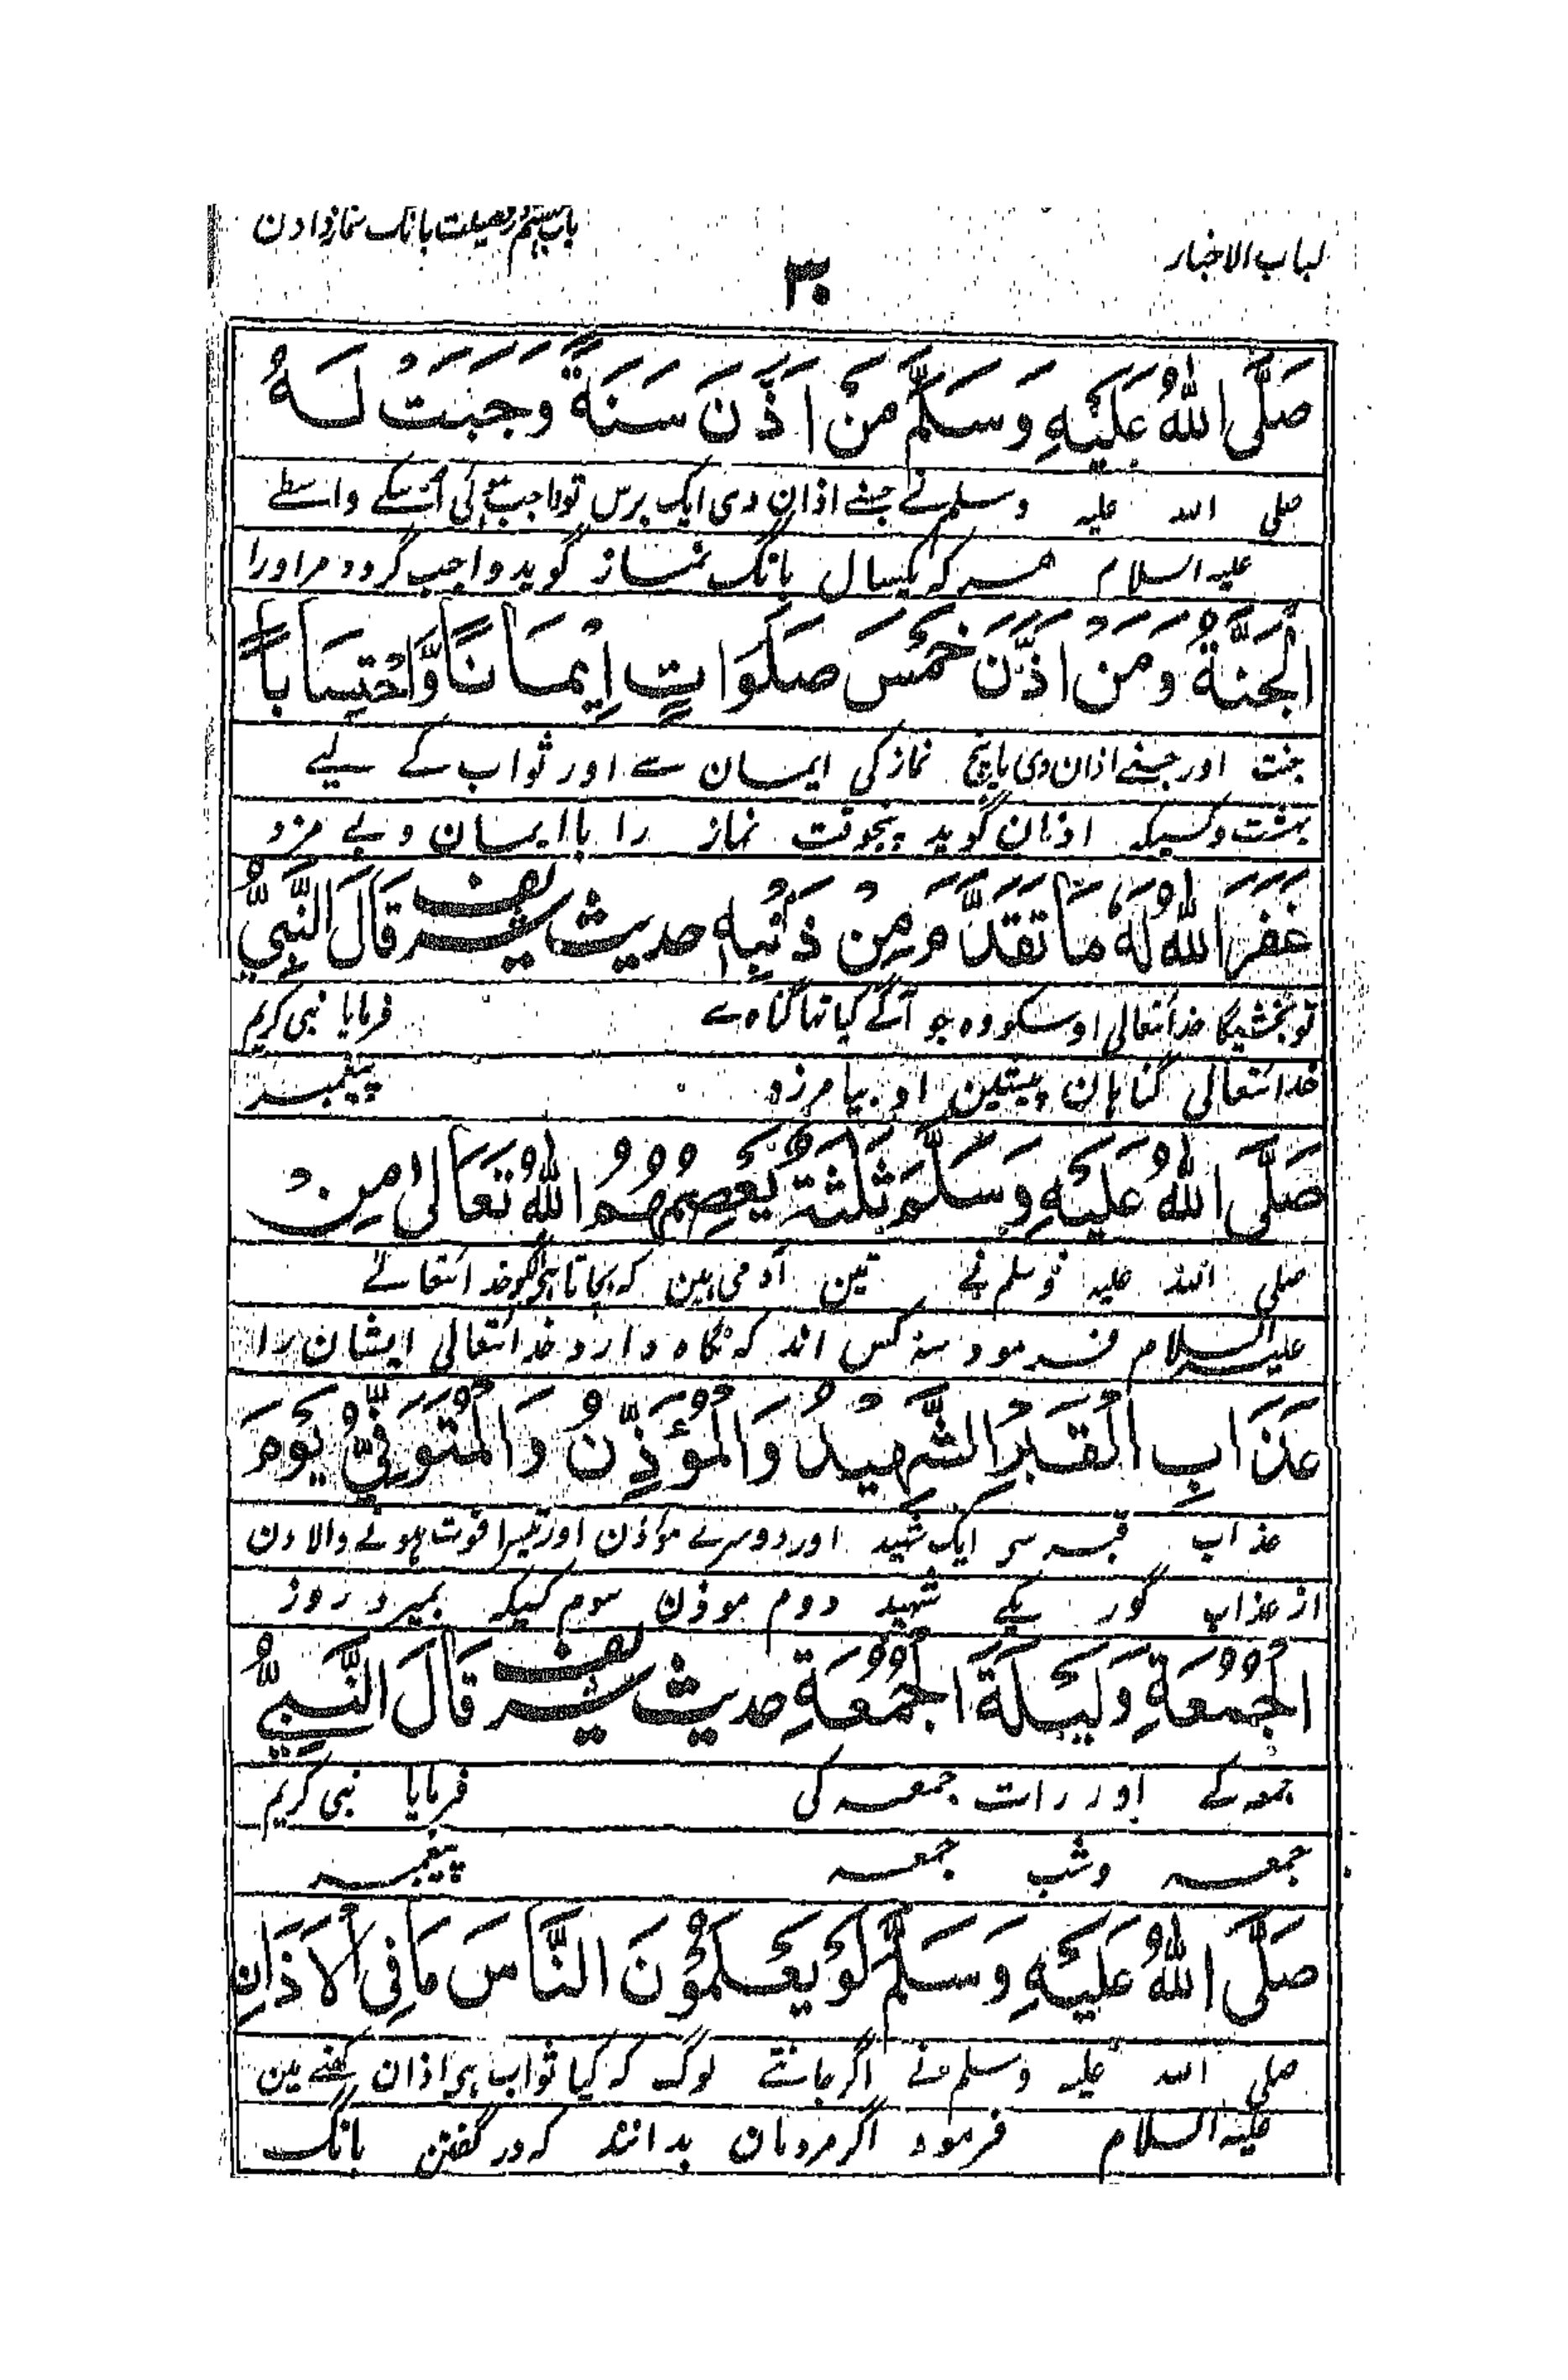 لباب الاخبار
۳۰
باب ہشتم در فضیلت بانگ نماز دادن
صَلَّى اللهُ عَلَيْهِ وَسَلَّمَ مَنْ اَذَّنَ سَنَةً وَجَبَتْ لَهُ
صلی اللہ علیہ وسلم نے جسنے اذان دی ایک برس تو واجب ہوئی اسکے واسطے
علیہ السلام ہر کہ یکسال بانگ نماز گوید واجب گردد مر اورا
الْجَنَّةُ وَمَنْ اَذَّنَ خَمْسَ صَلَوَاتٍ اِيْمَانًا وَّاحْتِسَابًا
جنت اور جسنے اذان دی پانچ نماز کی ایمان سے اور ثواب کے لیے
بہشت وکسیکہ اذان گوید پنجوقت نماز را با ایمان و بے مزد
غَفَرَ اللهُ لَهُ مَا تَقَدَّمَ مِنْ ذَنْبِهِ حدیث شریف قَالَ النَّبِيُّ
تو بخشیگا خدائتعالی اوسکو وہ جو آگے کیا تہا گناہ سے فرمایا نبی کریم
خدائتعالی گناہان پیشین او بیامرزد پیغمبر
صَلَّى اللهُ عَلَيْهِ وَسَلَّمَ ثَلٰثَةٌ يَعْصِمُهُمُ اللهُ تَعَالىٰ مِنْ
صلی اللہ علیہ وسلم نے تین آدمی ہین کہ بچاتا ہی انکو خدائتعالے
علیہ السلام فرمود سہ کس اند کہ نگاہ دارد خدائتعالی ایشان را
عَذَابِ الْقَبْرِ الشَّهِيْدُ وَالْمُؤَذِّنُ وَالْمُتَوَفّٰى يَوْمَ
عذاب قبر سے ایک شہید اور دوسرے مؤذن اور تیسرا فوت ہونے والا دن
از عذاب گور یکے شہید دوم موذن سوم کسیکہ بمیرد روز
الْجُمُعَةِ وَلَيْلَةَ الْجُمُعَةِ حدیث شریف قَالَ النَّبِيُّ
جمعہ کے اور رات جمعہ کی فرمایا نبی کریم
جمعہ وشب جمعہ پیغمبر
صَلَّى اللهُ عَلَيْهِ وَسَلَّمَ لَوْ يَعْلَمُوْنَ النَّاسَ مَا فِى الْاَذَانِ
صلی اللہ علیہ وسلم نے اگر جانتے لوگ کہ کیا ثواب ہی اذان کہنے مین
علیہ السلام فرمود اگر مردمان بدانند کہ در گفتن بانگ